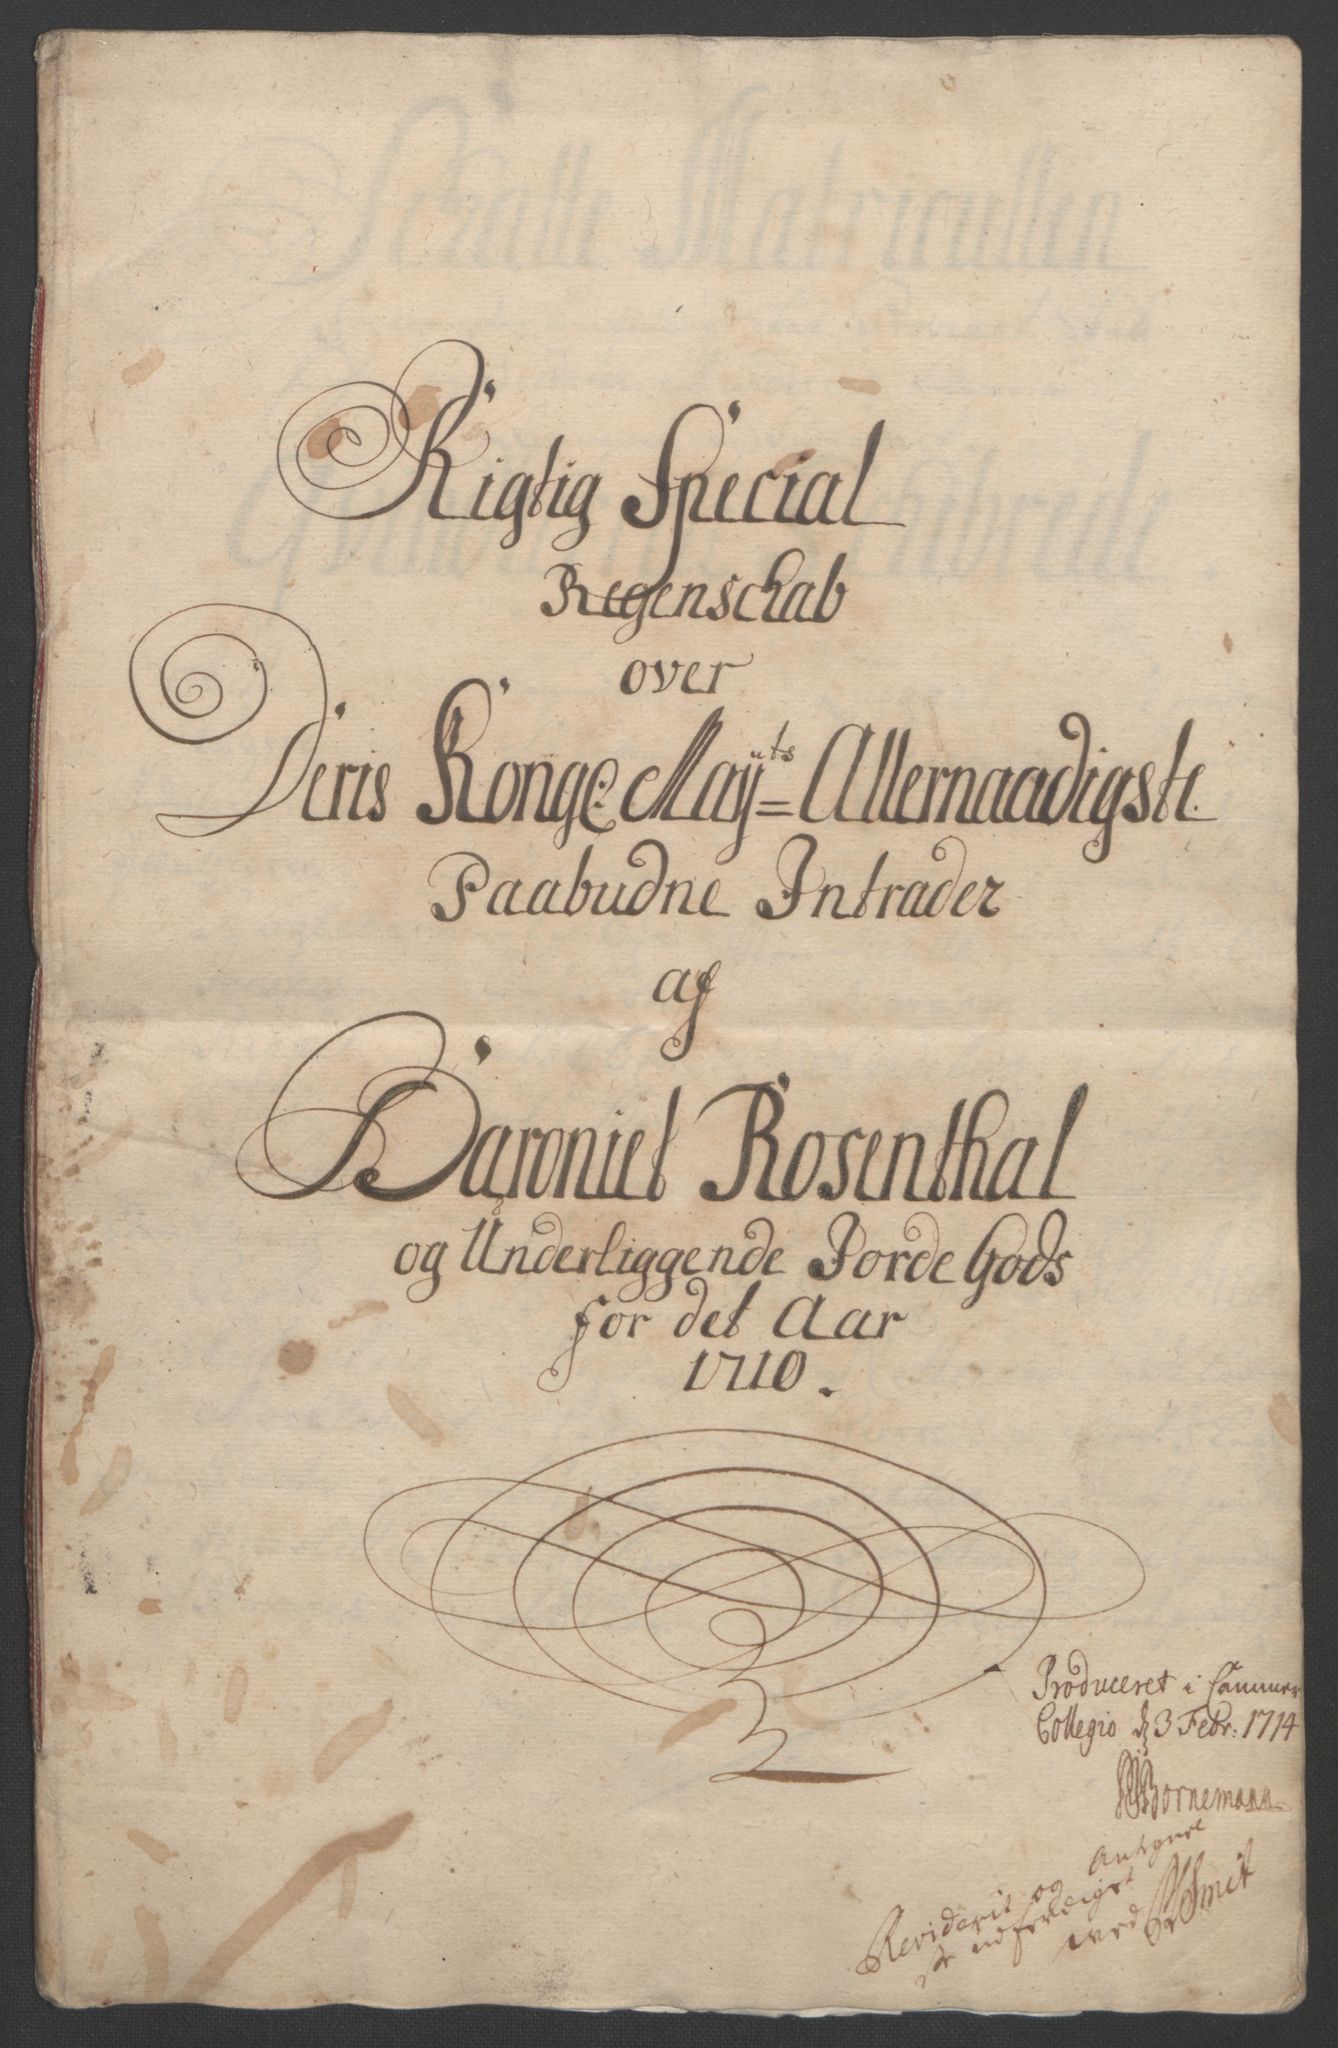 Rigtig Special
Regenschab
over
Deris Konge Maÿts= Allernaadigste
Paabudne Intrader
af
Baroniet Rosenthal
og Underliggende Jorde Gods
for det Aar
1710.
Produceret i Cammer
Collegio d 3 Febr: 1714
Bornemann
Revideret og
udferdiget
ved Smit